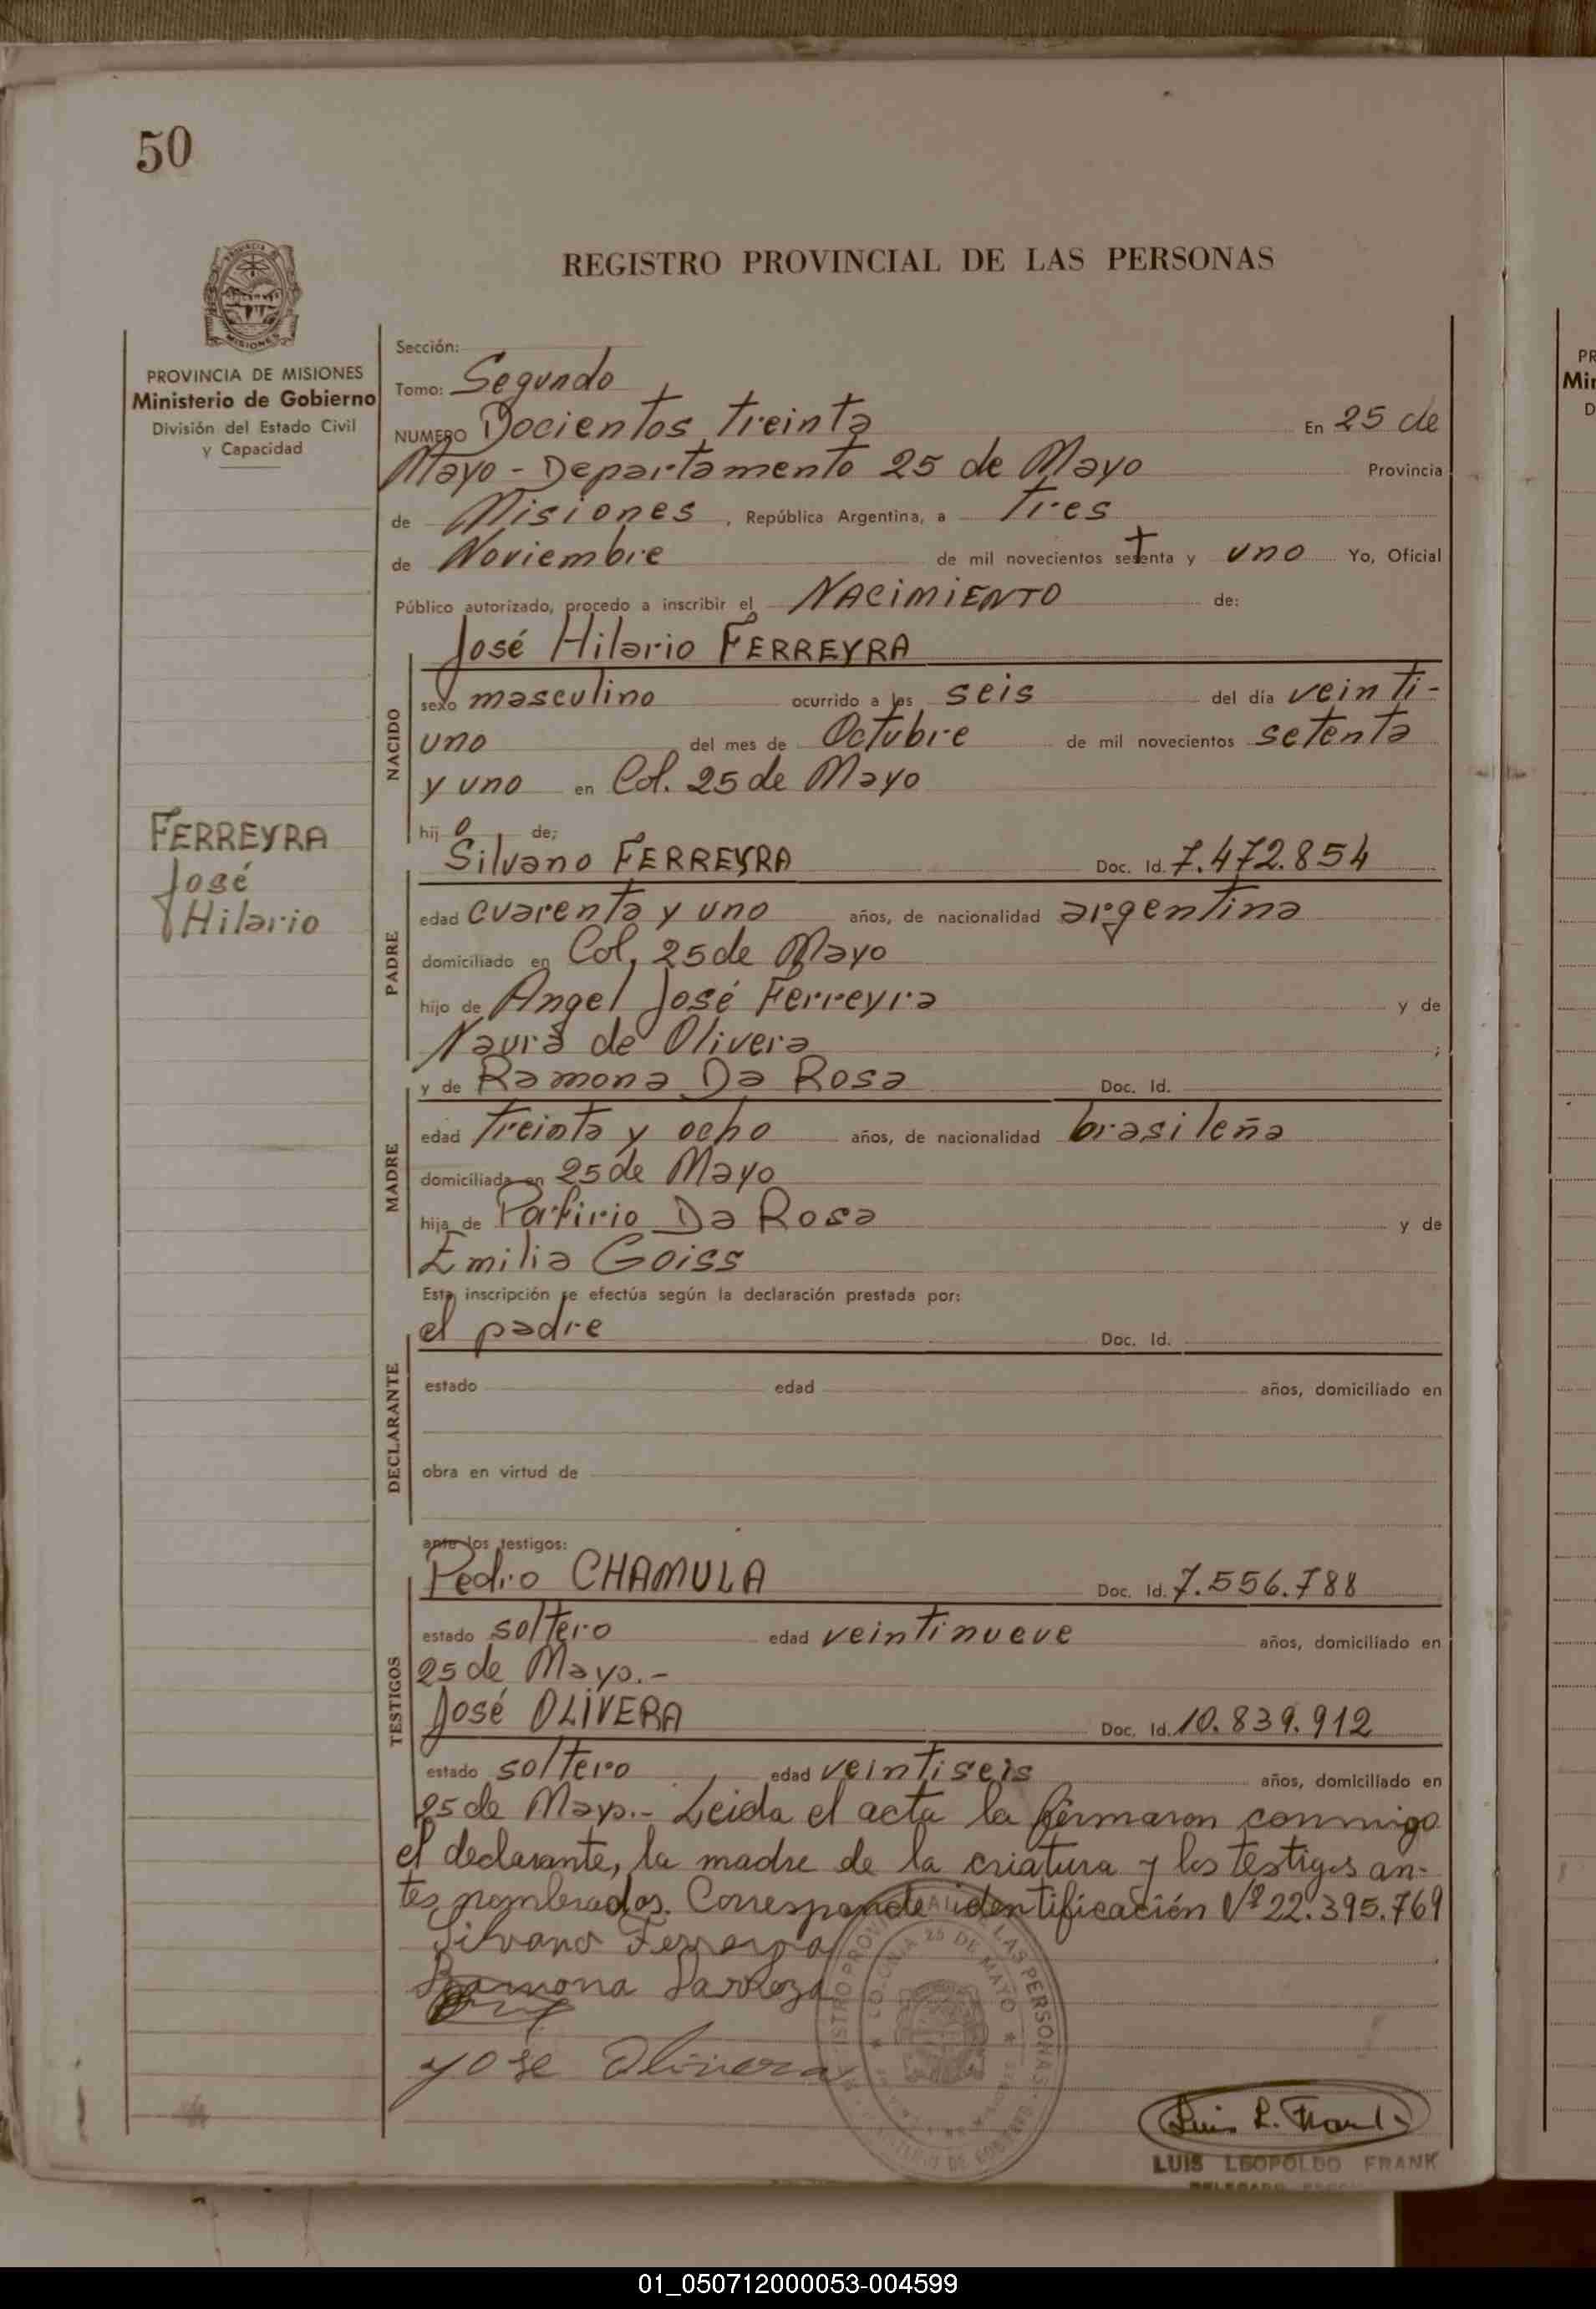 50
REGISTRO PROVINCIAL DE LAS PERSONAS
PROVINCIA
MISIONES
PROVINCIA DE MISIONES
Ministerio de Gobierno
División del Estado Civil
y Capacidad
Sección:
Tomo: Segundo
NUMERO Docientos treinta En 25 de
Mayo - Departamento 25 de Mayo Provincia
de Misiones, República Argentina, a tres
de Noviembre de mil novecientos setenta y uno Yo, Oficial
Público autorizado, procedo a inscribir el NACIMIENTO de:
José Hilario FERREYRA
NACIDO
sexo masculino ocurrido a las seis del día veinti-
uno del mes de Octubre de mil novecientos setenta
y uno en Col. 25 de Mayo
hijo de;
FERREYRA
José
Hilario
Silvano FERREYRA Doc. Id. 7.472.854
PADRE
edad cuarenta y uno años, de nacionalidad argentina
domiciliado en Col. 25 de Mayo
hijo de Angel José Ferreyra y de
Naura de Olivera ;
y de Ramona Da Rosa Doc. Id.
MADRE
edad treinta y ocho años, de nacionalidad brasileña
domiciliada en 25 de Mayo
hija de Porfirio Da Rosa y de
Emilia Goiss
Esta inscripción se efectúa según la declaración prestada por:
el padre Doc. Id.
DECLARANTE
estado edad años, domiciliado en
obra en virtud de
ante los testigos:
Pedro CHAMULA Doc. Id. 7.556.788
TESTIGOS
estado soltero edad veintinueve años, domiciliado en
25 de Mayo.-
José OLIVERA Doc. Id. 10.839.912
estado soltero edad veintiseis años, domiciliado en
25 de Mayo.- Leida el acta la firmaron conmigo
el declarante, la madre de la criatura y los testigos an-
tes nombrados. Corresponde identificación Nº 22.395.769
Silvano Ferreyra
Ramona Darroza
Yose Olivera
COLONIA 25 DE MAYO
LAS PERSONAS
Luis L. Frank
LUIS LEOPOLDO FRANK
PR
Min
D
01_050712000053-004599